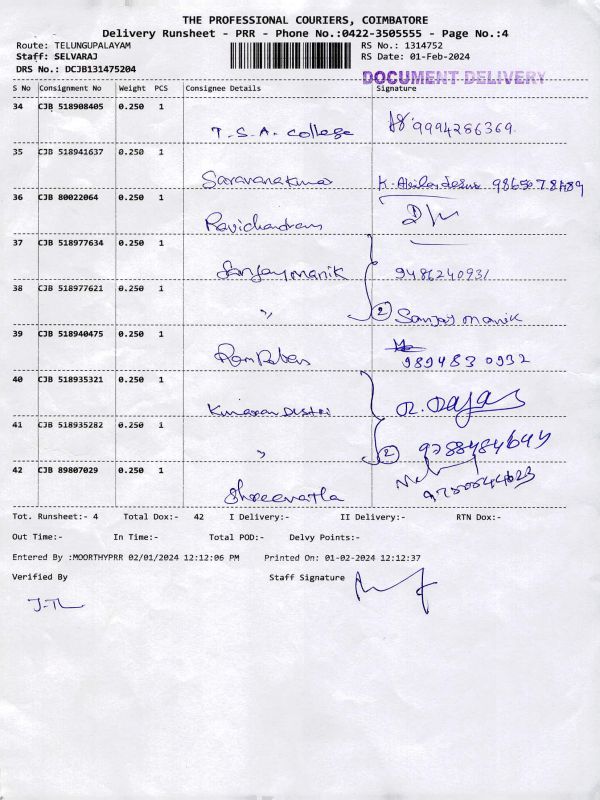 THE PROFESSIONAL COURIERS, COIMBATORE
Delivery Runsheet - PRR - Phone No.:0422-3505555 - Page No.:4
Route: TELUNGUPALAYAM RS No.: 1314752
Staff: SELVARAJ RS Date: 01-Feb-2024
DRS No.: DCJB131475204
DOCUMENT DELIVERY
S No Consignment No Weight PCS Consignee Details Signature
34 CJB 518908405 0.250 1
T.S.A. College 9994286369
35 CJB 518941637 0.250 1
Saravanakumar K.
36 CJB 80022064 0.250 1
Ravichandran
37 CJB 518977634 0.250 1
Sanjay manik 9486240931
38 CJB 518977621 0.250 1
" 2 Sanjay manik
39 CJB 518940475 0.250 1
9894830932
40 CJB 518935321 0.250 1
R.
41 CJB 518935282 0.250 1
" 2
42 CJB 89807029 0.250 1
Tot. Runsheet:- 4 Total Dox:- 42 I Delivery:- II Delivery:- RTN Dox:-
Out Time:- In Time:- Total POD:- Delvy Points:-
Entered By :MOORTHYPRR 02/01/2024 12:12:06 PM Printed On: 01-02-2024 12:12:37
Verified By Staff Signature